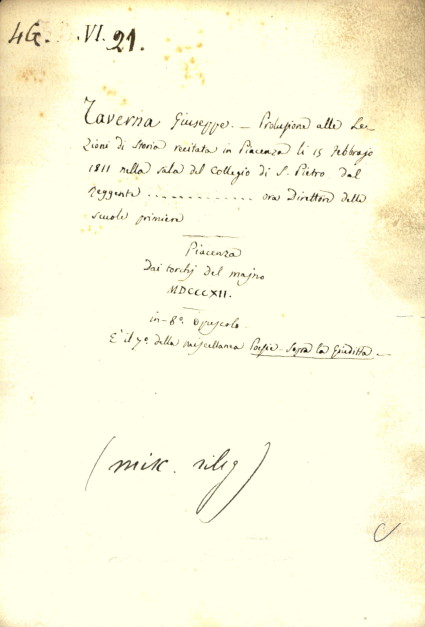 4G. .VI. 21.
Taverna Giuseppe. — Prolusione alle Le-
zioni di Storia recitata in Piacenza li 15 Febbrajo
1811 nella sala del Collegio di S. Pietro dal
Reggente .............. ora Direttore delle
scuole primiere
Piacenza
Dai torchj del majno
MDCCCXII.
in-8º. Opuscolo.
È il 7º. della miscellanea Poesie - Sopra la Giuditta -
(misc. rileg)